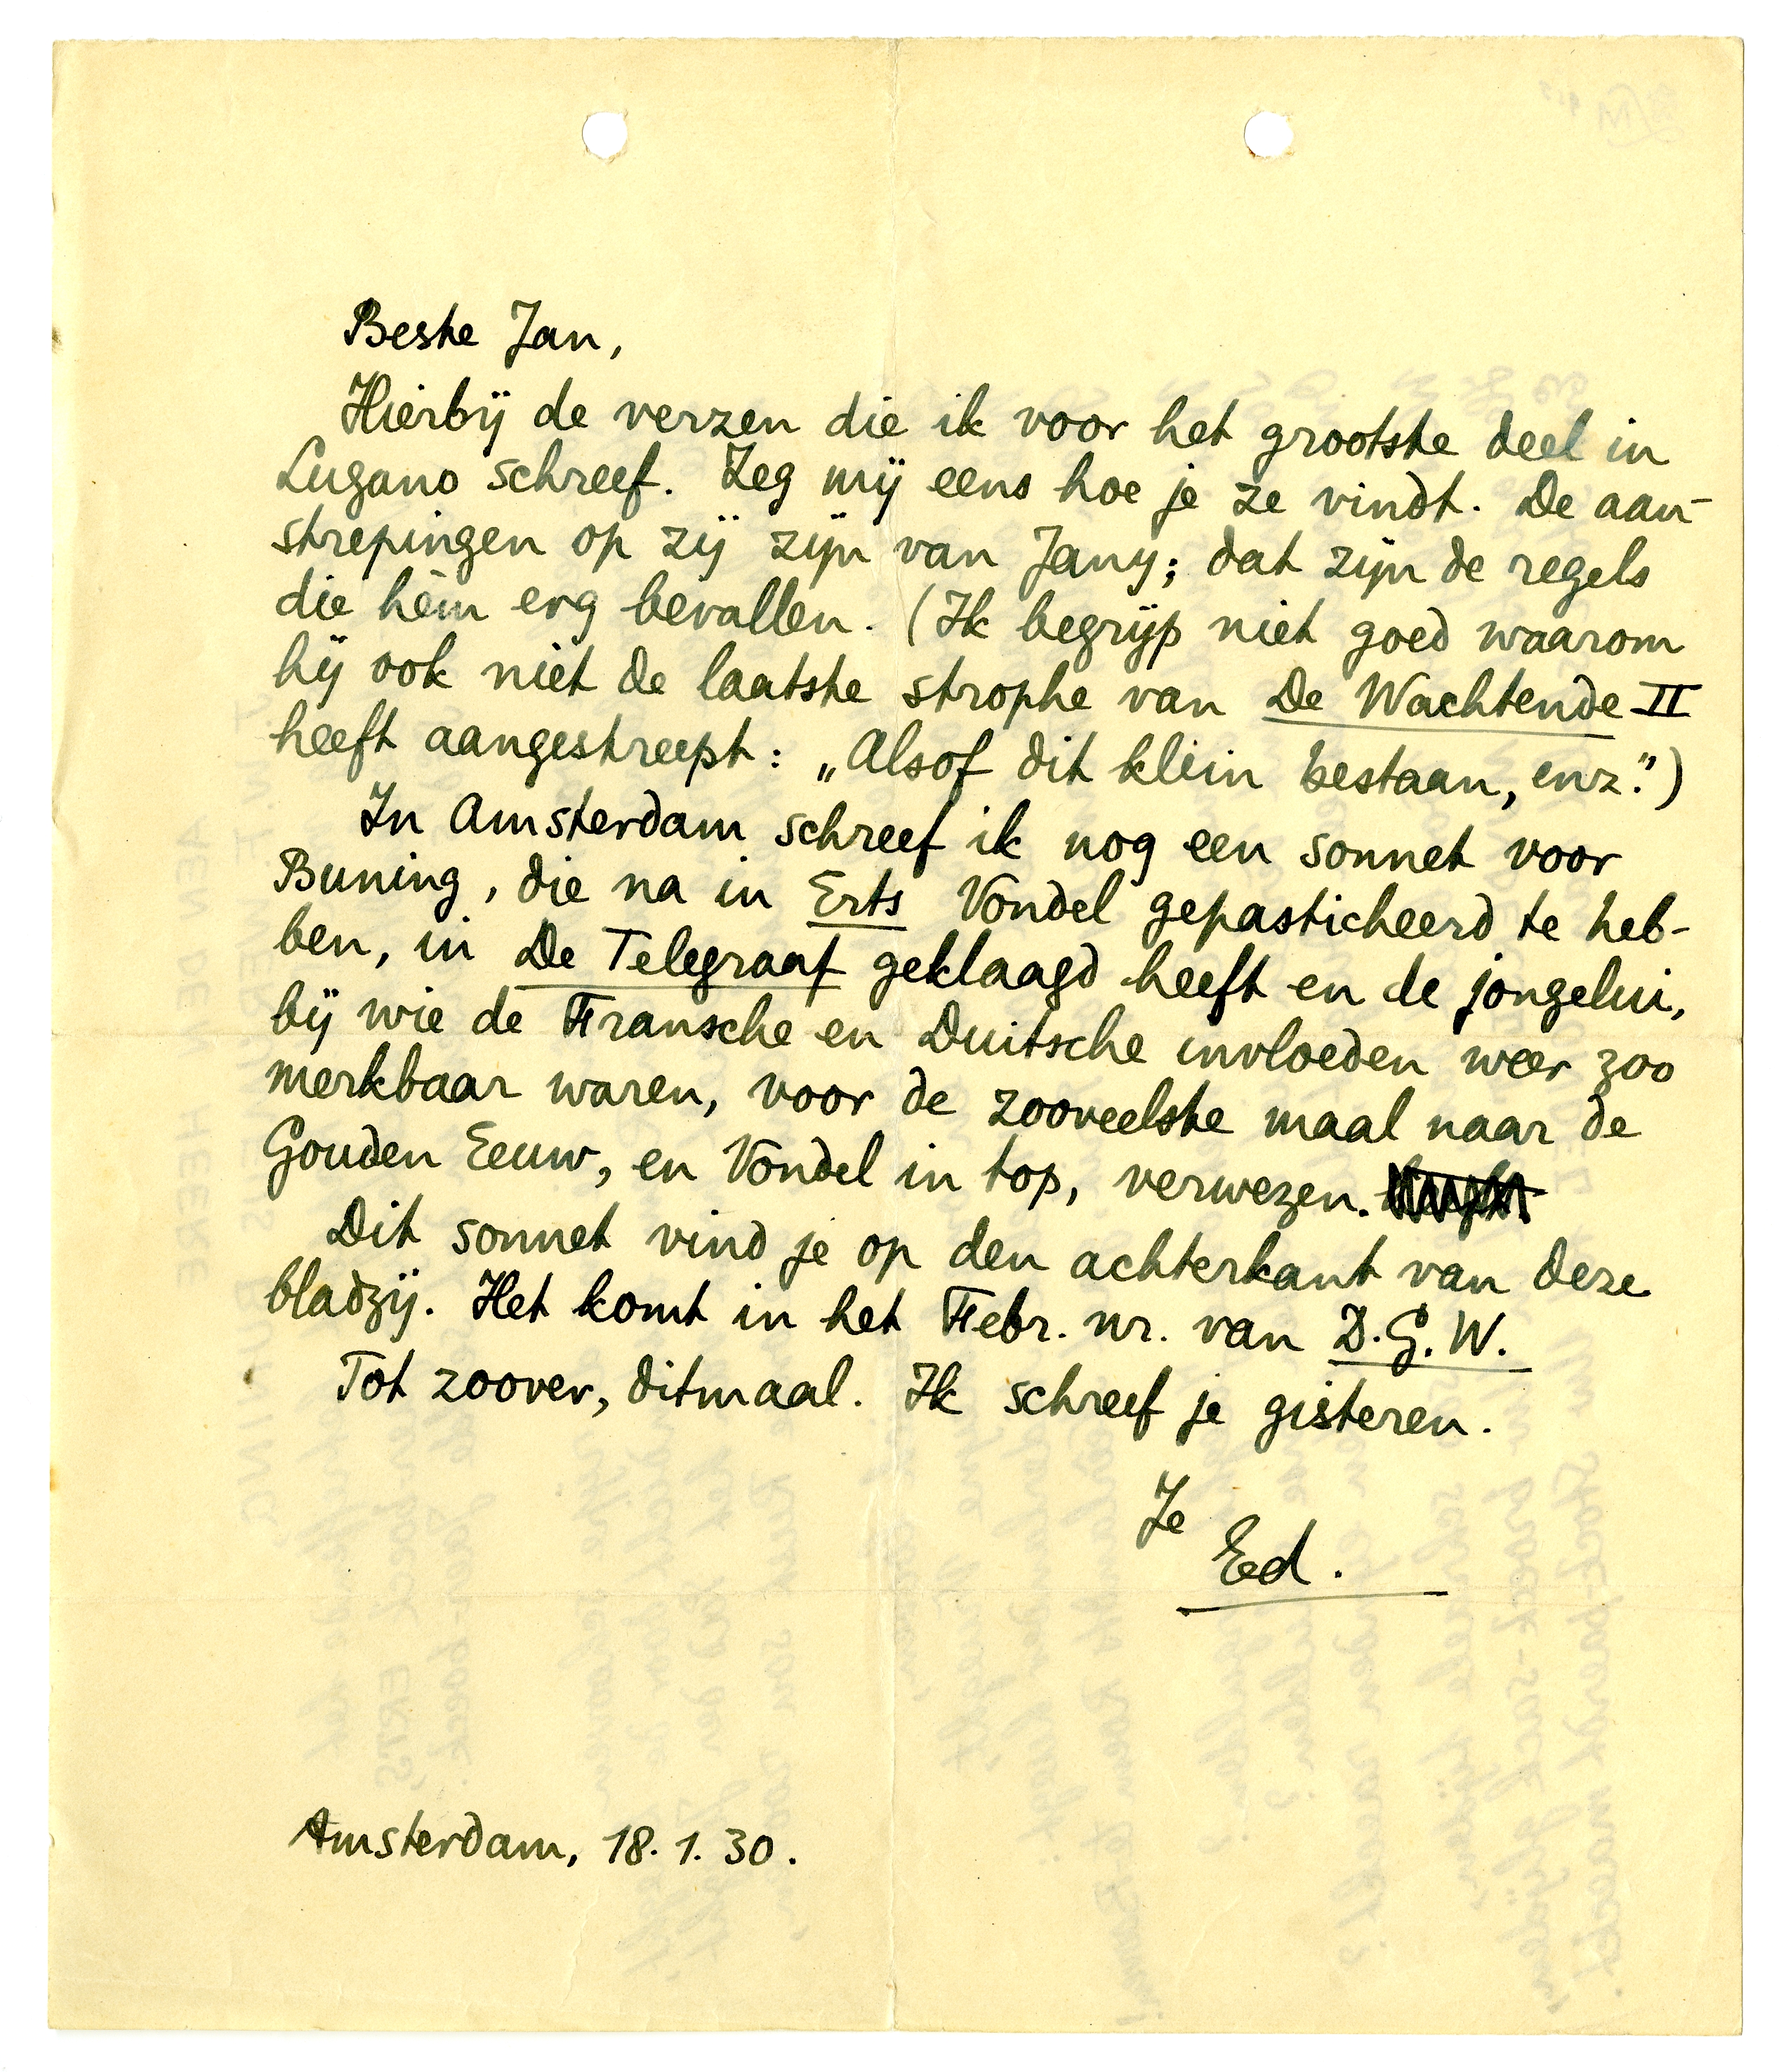 Beste Jan,
Hierbij de verzen die ik voor het grootste deel in
Lugano schreef. Zeg mij eens hoe je ze vindt. De aan-
strepingen op zij zijn van Jany; dat zijn de regels
die hèm erg bevallen. (Ik begrijp niet goed waarom
hij ook niet de laatste strophe van De Wachtende II
heeft aangestreept: „Alsof dit klein bestaan, enz.")
In Amsterdam schreef ik nog een sonnet voor
Buning, die na in Erts Vondel gepasticheerd te heb-
ben, in De Telegraaf geklaagd heeft en de jongelui,
bij wie de Fransche en Duitsche invloeden weer zoo
merkbaar waren, voor de zooveelste maal naar de
Gouden Eeuw, en Vondel in top, verwezen.
Dit sonnet vind je op den achterkant van deze
bladzij. Het komt in het Febr. nr. van D.G.W.
Tot zoover, ditmaal. Ik schreef je gisteren.
Je
Ed.
Amsterdam, 18.1.30.